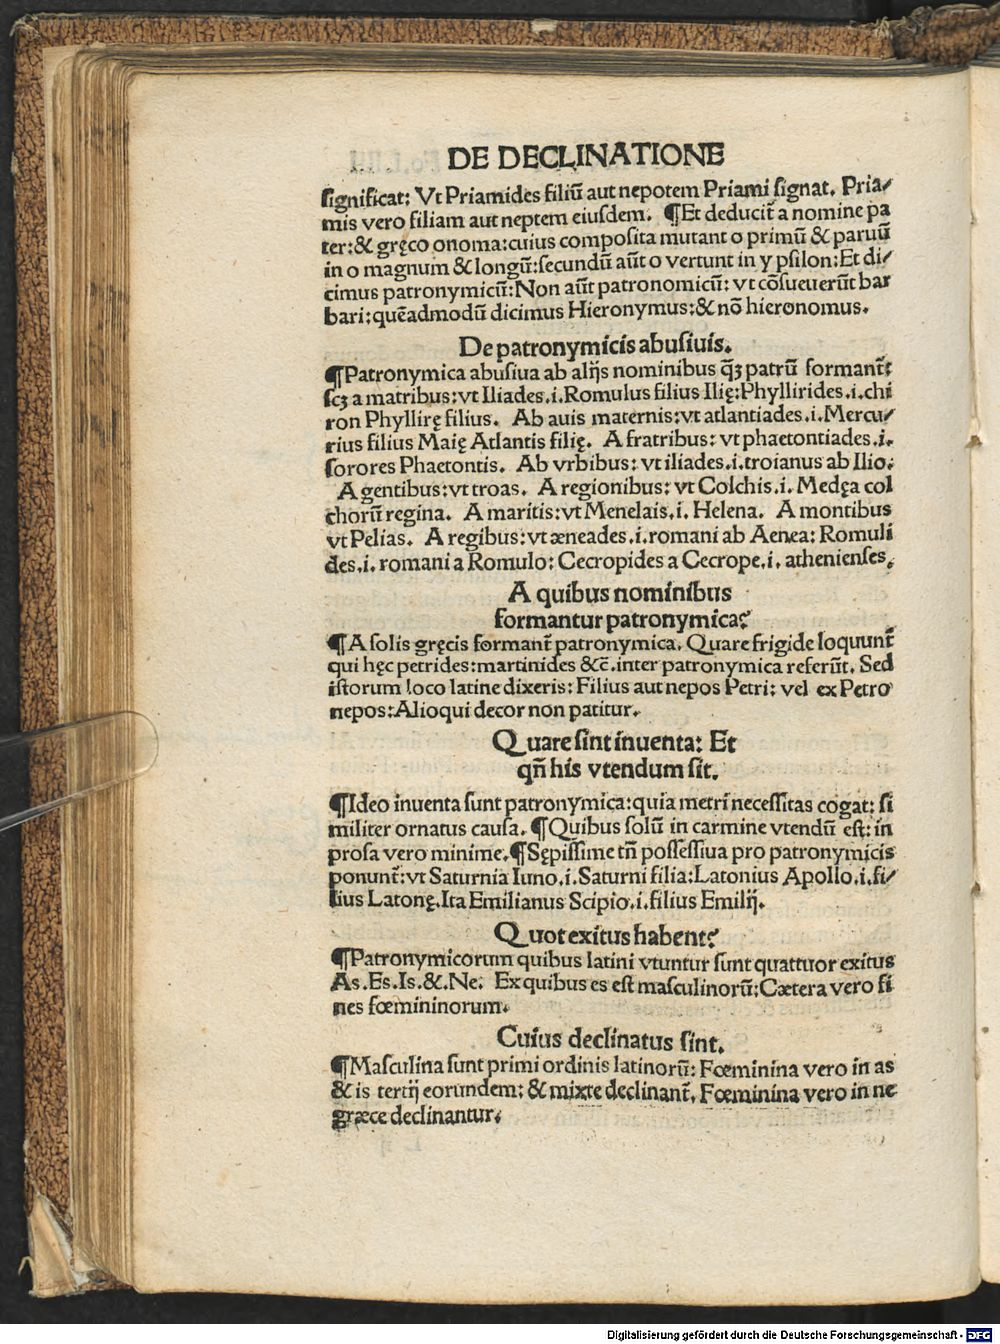 DE DECLINATIONE
significat: Vt Priamides filiũ aut nepotem Priami signat. Pria/
mis vero filiam aut neptem eiusdem. ¶Et deducit̃ a nomine pa
ter: & gręco onoma: cuius composita mutant o primũ & paruũ
in o magnum & longũ: secundũ aũt o vertunt in y psilon: Et di/
cimus patronymicũ: Non aũt patronomicũ: vt cõsueuerũt bar
bari: quẽadmodũ dicimus Hieronymus: & nõ hieronomus.
De patronymicis abusiuis.
¶Patronymica abusiua ab alijs nominibus q̃ꝫ patrũ formant̃:
scꝫ a matribus: vt Iliades .i. Romulus filius Ilię: Phyllirides .i. chi
ron Phyllirę filius. Ab auis maternis: vt atlantiades .i. Mercu/
rius filius Maię Atlantis filię. A fratribus: vt phaetontiades .i.
sorores Phaetontis. Ab vrbibus: vt iliades .i. troianus ab Ilio.
A gentibus: vt troas. A regionibus: vt Colchis .i. Medęa col
chorũ regina. A maritis: vt Menelais .i. Helena. A montibus
vt Pelias. A regibus: vt æneades .i. romani ab Aenea: Romuli
des .i. romani a Romulo: Cecropides a Cecrope .i. athenienses.
A quibus nominibus
formantur patronymica?
¶A solis gręcis formant̃ patronymica. Quare frigide loquunt̃
qui hęc petrides: martinides &c̃. inter patronymica referũt. Sed
istorum loco latine dixeris: Filius aut nepos Petri: vel ex Petro
nepos: Alioqui decor non patitur.
Quare sint inuenta: Et
qñ his vtendum sit.
¶Ideo inuenta sunt patronymica: quia metri necessitas cogat: si
militer ornatus causa. ¶Quibus solũ in carmine vtendũ est: in
prosa vero minime. ¶Sępissime tñ possessiua pro patronymicis
ponunt̃: vt Saturnia Iuno .i. Saturni filia: Latonius Apollo .i. fi/
lius Latonę. Ita Emilianus Scipio .i. filius Emilij.
Quot exitus habent?
¶Patronymicorum quibus latini vtuntur sunt quattuor exitus
As. Es. Is. &. Ne. Ex quibus es est masculinorũ: Cætera vero fi
nes fœmininorum.
Cuius declinatus sint.
¶Masculina sunt primi ordinis latinorũ: Fœminina vero in as
& is tertij eorundem: & mixte declinant̃. Fœminina vero in ne
græce declinantur.
Digitalisierung gefördert durch die Deutsche Forschungsgemeinschaft - DFG